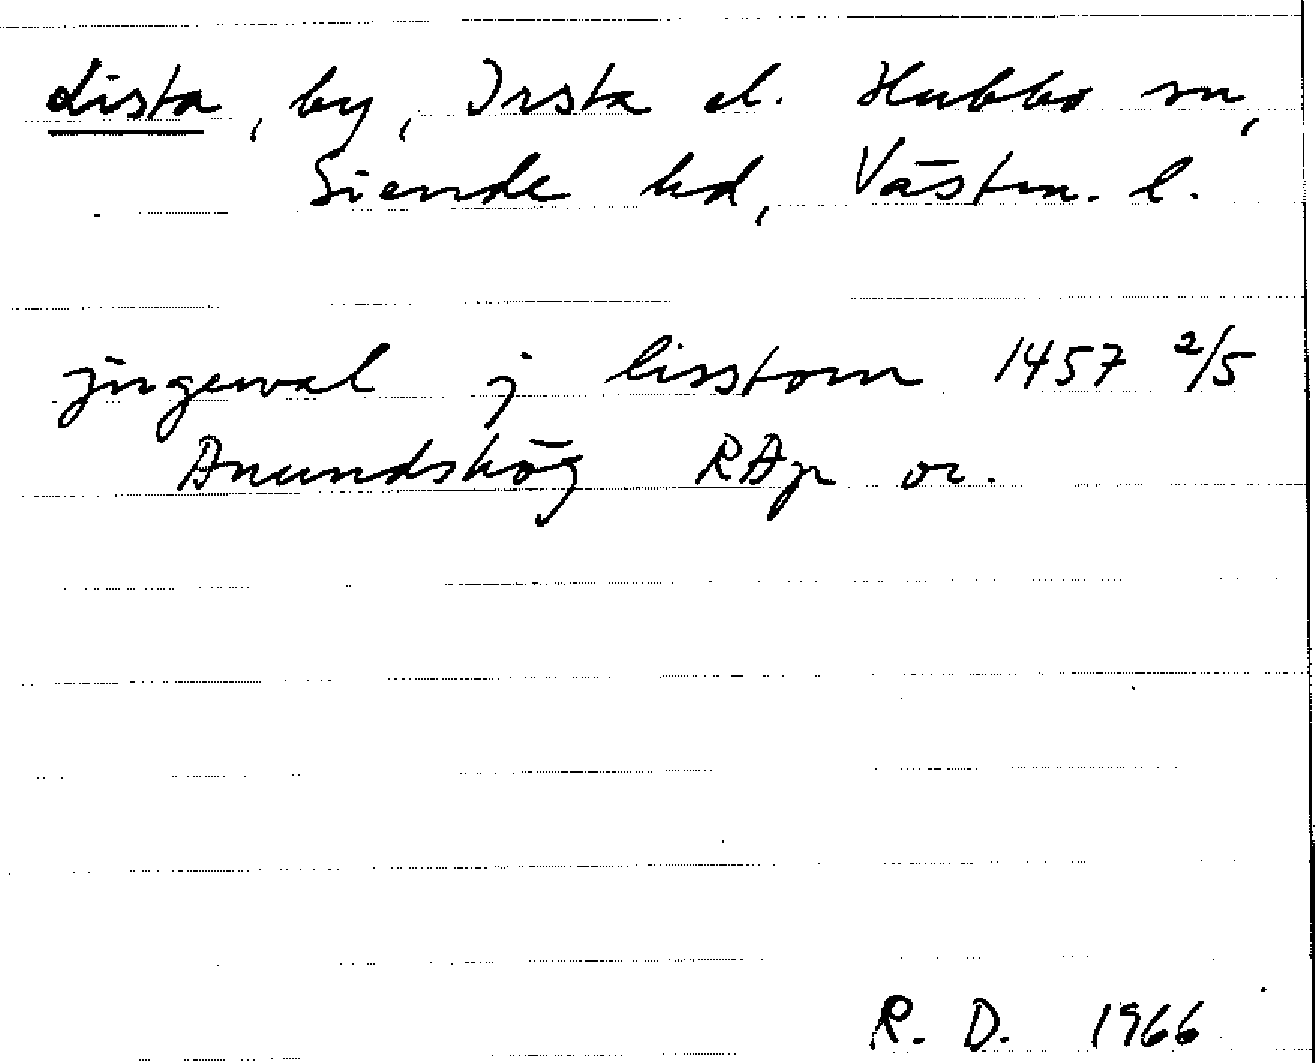 Lista, by, Irsta el. Hubbo sn,
Siende hd, Västm. l.
jngewal j lisstom 1457 2/5
Anundshög RAp or.
R. D. 1966